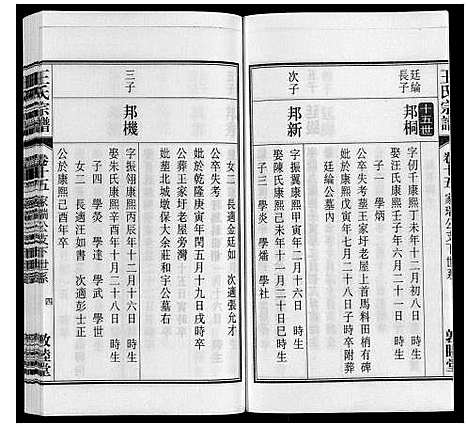 王氏宗譜
卷十五
家瑞公支下世系
敦睦堂
十五世
廷綸長子
邦桐
字初千康熙丁未年十二月初八日 時生
娶汪氏康熙壬子年六月二十一日 時生
子一 學炳
公卒失考葬王家圩老屋上首馬料田梢有碑
妣於康熙戊寅年七月二十八日子時卒附葬
廷綸公墓內
次子
邦新
字振翼康熙甲寅年二月十六日 時生
娶陳氏康熙己未年十一月二十日巳時生
子三 學炎 學燔 學社
三子
邦機
字振翎康熙丙辰年十二月十六日 時生
娶朱氏康熙辛酉年十月二十八日 時生
子四 學熒 學達 學武 學世
女二 長適汪如書 次適彭士正
公於康熙己酉年卒
女二 長適金廷如 次適張允才
公卒失考
妣於乾隆庚寅年閏五月十九日戌時卒
公葬王家圩老屋旁灣
妣葬北城墩保大余莊和宇公墓右
王氏宗譜
卷十五
家瑞公支下世系
四
敦睦堂